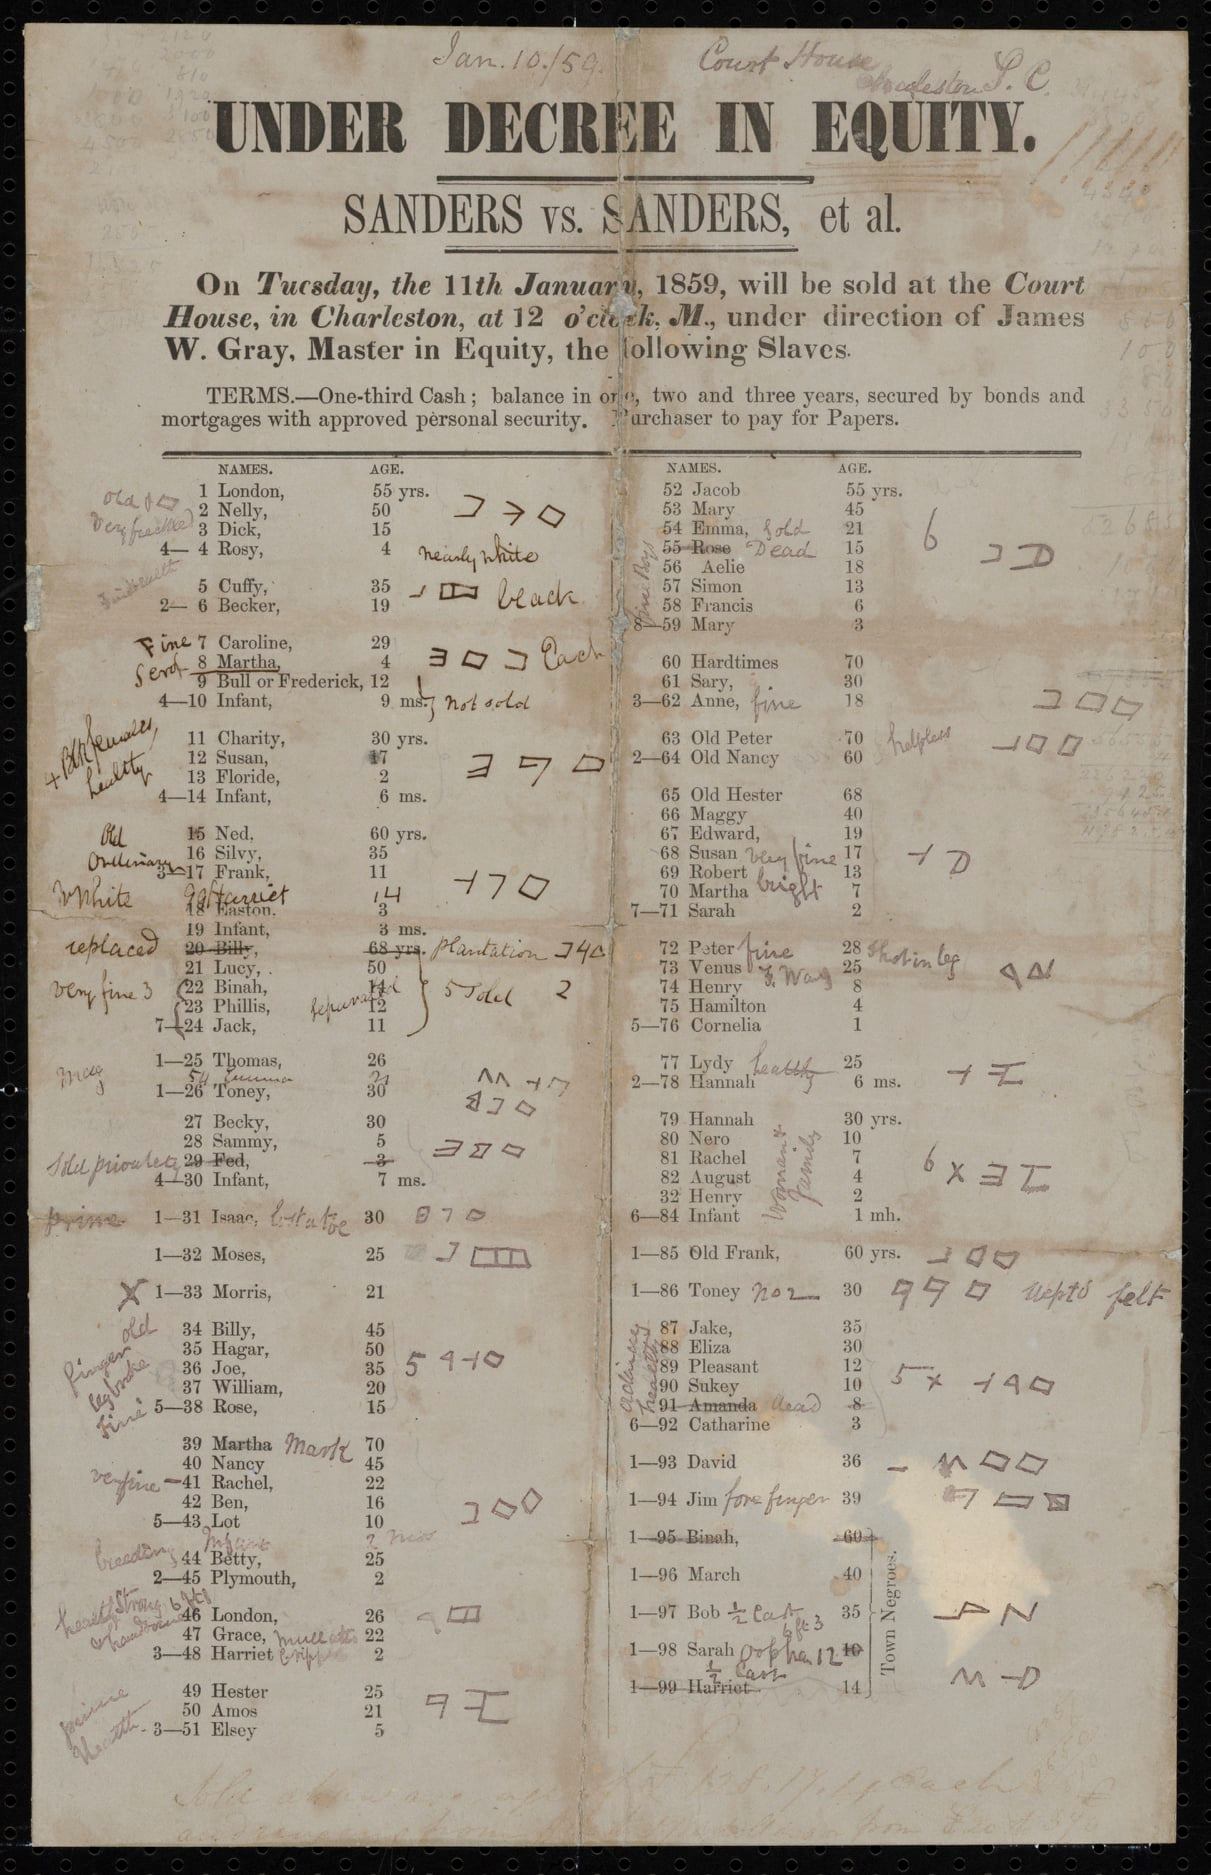 Jan. 10./59. Court House
Charleston S. C.
UNDER DECREE IN EQUITY.
SANDERS vs. SANDERS, et al.
On Tuesday, the 11th January, 1859, will be sold at the Court
House, in Charleston, at 12 o'clock, M., under direction of James
W. Gray, Master in Equity, the following Slaves.
TERMS.—One-third Cash; balance in one, two and three years, secured by bonds and
mortgages with approved personal security. Purchaser to pay for Papers.
NAMES. AGE.
1 London, 55 yrs.
old 2 Nelly, 50
Very 3 Dick, 15
4— 4 Rosy, 4 nearly white
5 Cuffy, 35 black
2— 6 Becker, 19
Fine 7 Caroline, 29
8 Martha, 4 Each
9 Bull or Frederick, 12
4—10 Infant, 9 ms. not sold
11 Charity, 30 yrs.
females, 12 Susan, 17
healthy 13 Floride, 2
4—14 Infant, 6 ms.
Old 15 Ned, 60 yrs.
Ordinary 16 Silvy, 35
3—17 Frank, 11
White 99 Harriet 14
18 Easton. 3
19 Infant, 3 ms.
replaced 20 Billy, 68 yrs. plantation
21 Lucy, 50
very fine 3 22 Binah, 14 5 Sold 2
23 Phillis, 12 separated
7—24 Jack, 11
1—25 Thomas, 26
54 Emma 21
1—26 Toney, 30
27 Becky, 30
28 Sammy, 5
Sold privately 29 Fed, 3
4—30 Infant, 7 ms.
prime 1—31 Isaac, 30
1—32 Moses, 25
X 1—33 Morris, 21
old 34 Billy, 45
finger 35 Hagar, 50
leg broke 36 Joe, 35
37 William, 20
Fine 5—38 Rose, 15
39 Martha Mark 70
40 Nancy 45
very fine 41 Rachel, 22
42 Ben, 16
5—43 Lot 10
Infant 2 mos
breeding 44 Betty, 25
2—45 Plymouth, 2
healthy Strong 46 London, 26
& handsome 47 Grace, mulatto 22
3—48 Harriet 2
prime 49 Hester 25
health 50 Amos 21
3—51 Elsey 5
NAMES. AGE.
52 Jacob 55 yrs.
53 Mary 45
54 Emma, Sold 21
55 Rose Dead 15
56 Aelie 18
57 Simon 13
58 Francis 6
8—59 Mary 3
fine Boys
60 Hardtimes 70
61 Sary, 30
3—62 Anne, fine 18
63 Old Peter 70 helpless
2—64 Old Nancy 60
65 Old Hester 68
66 Maggy 40
67 Edward, 19
68 Susan very fine 17
69 Robert 13
70 Martha bright 7
7—71 Sarah 2
72 Peter fine 28 Shot in leg
73 Venus 25
74 Henry 8
75 Hamilton 4
5—76 Cornelia 1
77 Lydy healthy 25
2—78 Hannah 6 ms.
79 Hannah 30 yrs.
80 Nero 10
81 Rachel 7
82 August 4
32 Henry 2
6—84 Infant 1 mh.
Woman & family
1—85 Old Frank, 60 yrs.
1—86 Toney no 2 30 felt
87 Jake, 35
88 Eliza 30
89 Pleasant 12
90 Sukey 10
91 Amanda dead 8
6—92 Catharine 3
healthy
1—93 David 36
1—94 Jim fore finger 39
1—95 Binah, 60
1—96 March 40
1—97 Bob ½ Cast 35
6 ft 3
1—98 Sarah orphan 12 10
½ Cast
1—99 Harriet 14
Town Negroes.